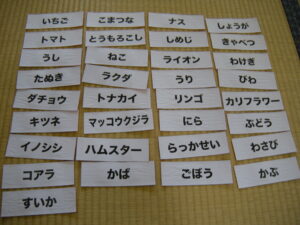 いちご
こまつな
ナス
しょうが
トマト
とうもろこし
しめじ
きゃべつ
うし
ねこ
ライオン
わけぎ
たぬき
ラクダ
うり
びわ
ダチョウ
トナカイ
リンゴ
カリフラワー
キツネ
マッコウクジラ
にら
ぶどう
イノシシ
ハムスター
らっかせい
わさび
コアラ
かば
ごぼう
かぶ
すいか